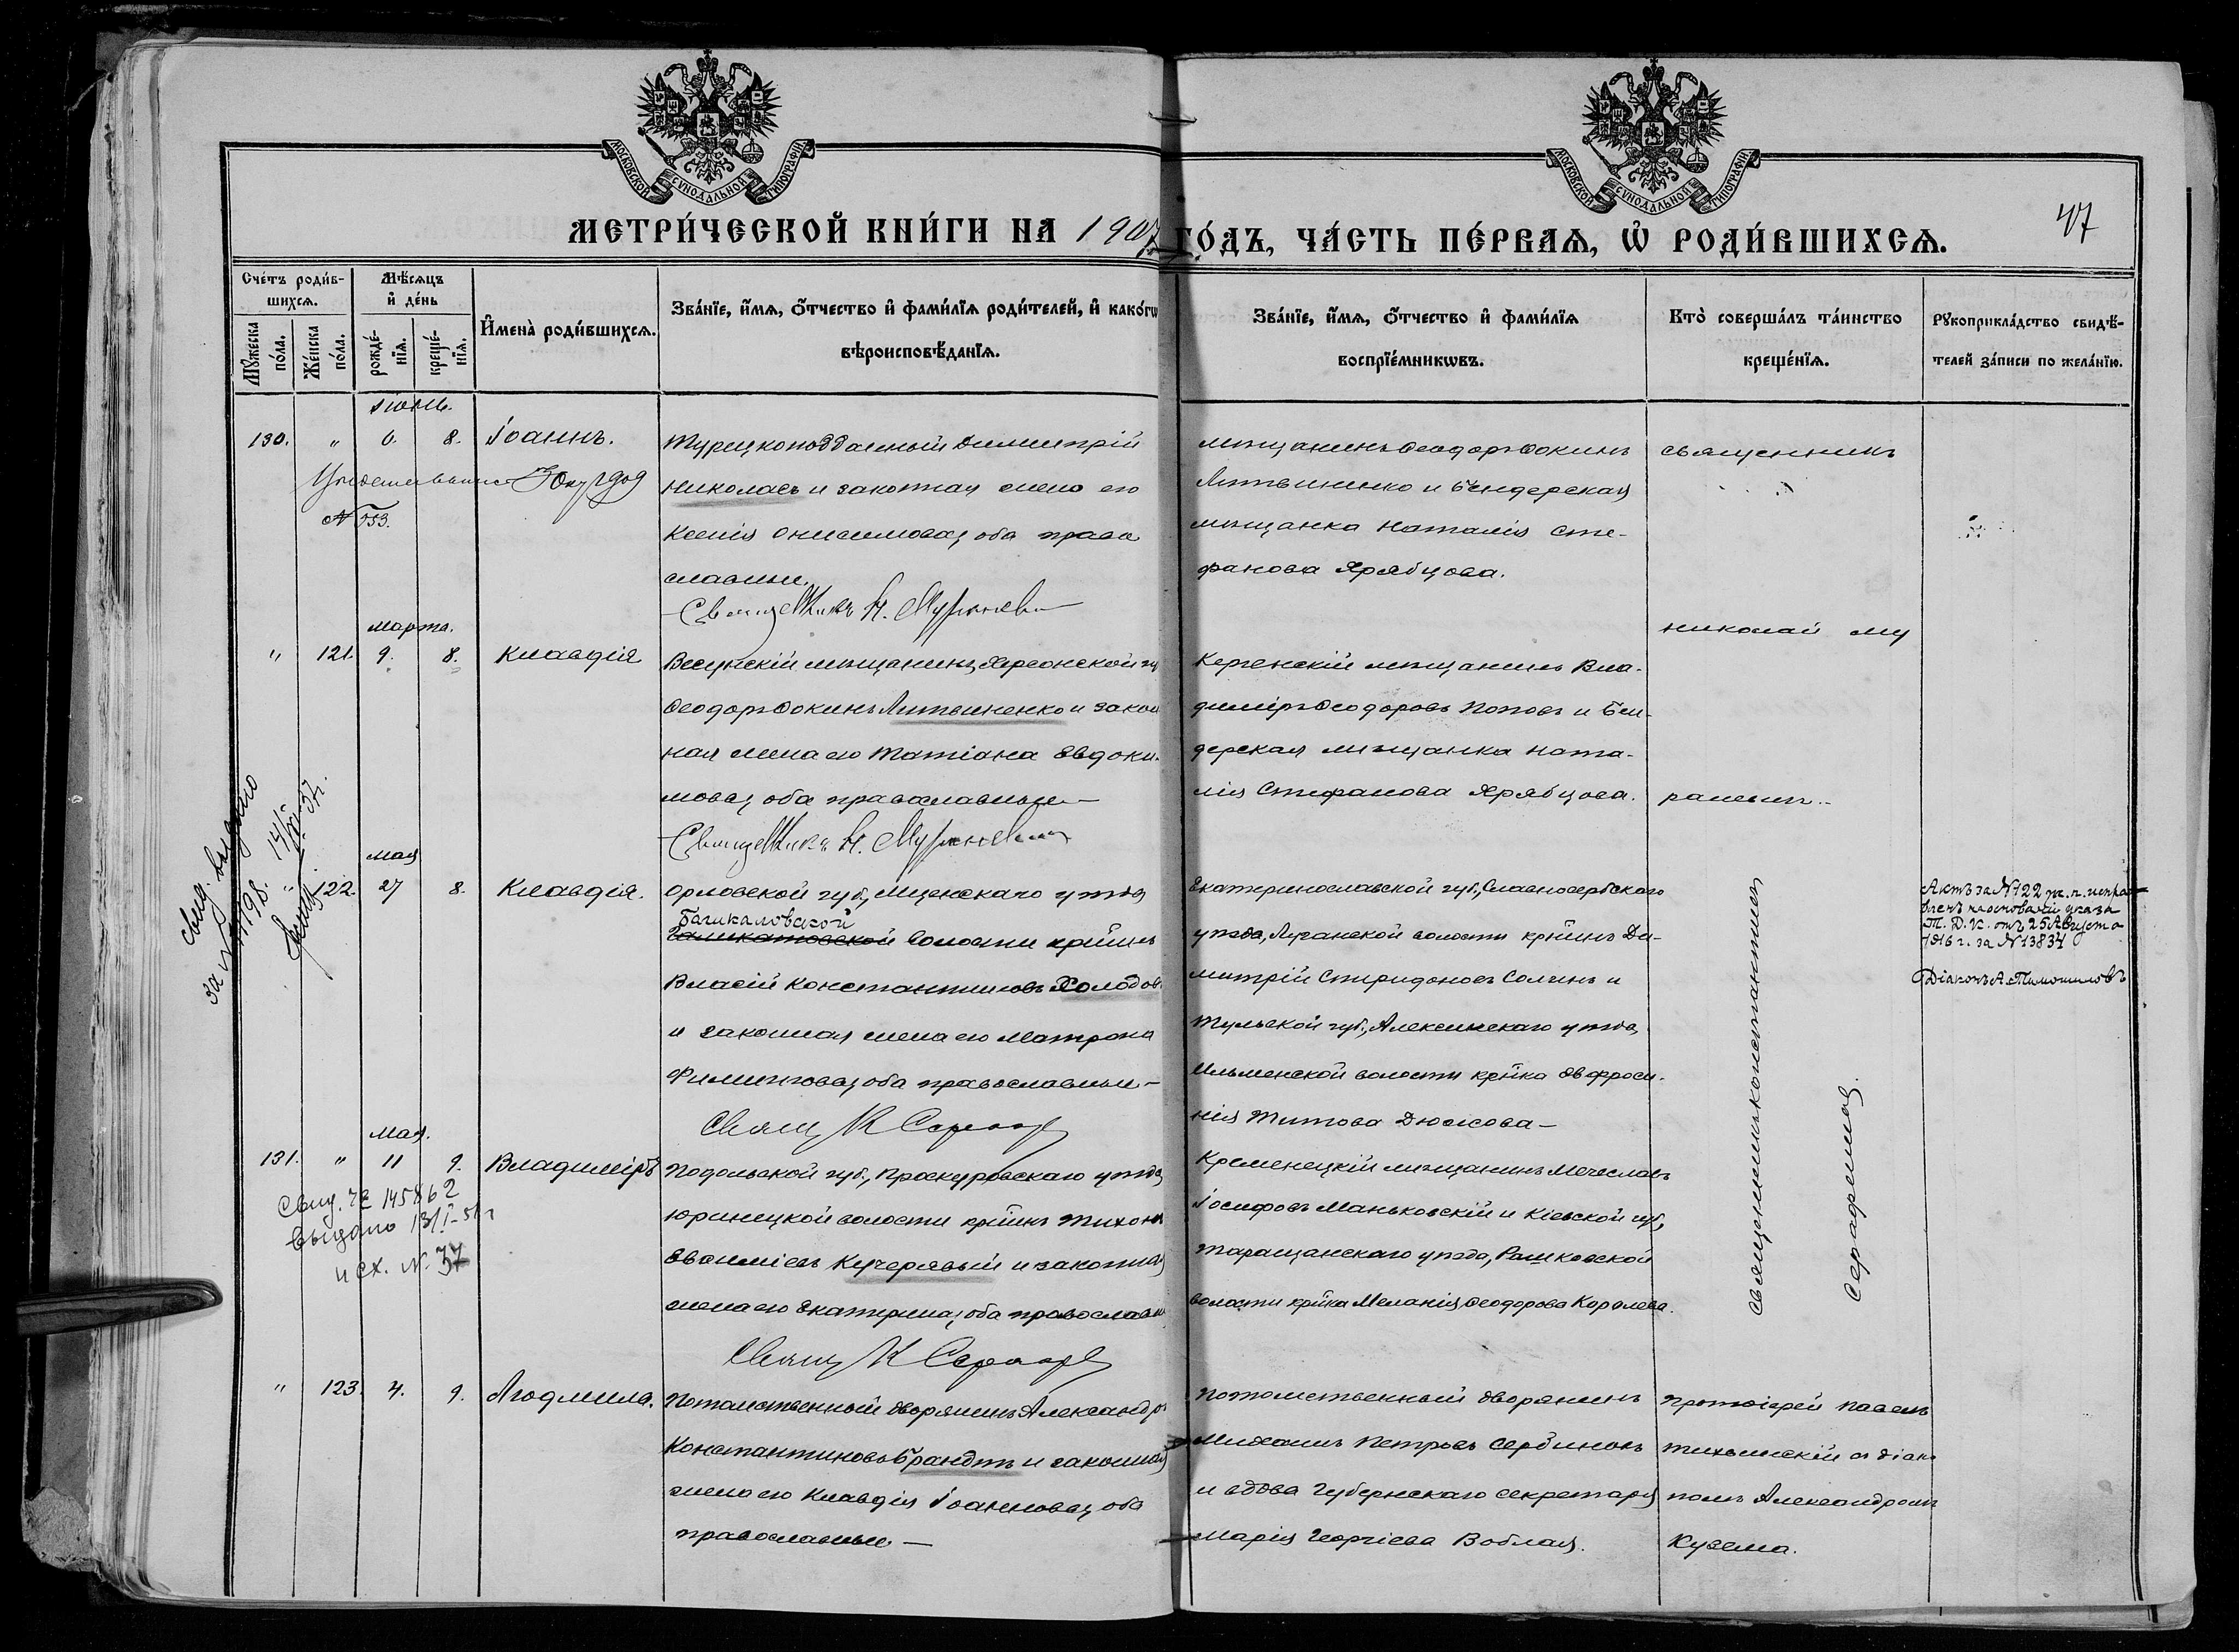 МОСКОВСКОЙ СУНОДАЛЬНОЙ ТИПОГРАФІИ
МОСКОВСКОЙ СУНОДАЛЬНОЙ ТИПОГРАФІИ
МЕТРИ́ЧЕСКОЙ КНИ́ГИ НА 1907
ГО́ДЪ, ЧА́СТЬ ПЕ́РВАѦ, Ѡ҆ РОДИ́ВШИХСѦ.
47
Сче́тъ роди́в-
шихсѧ.
Мꙋ́жеска по́ла.
Же́нска по́ла.
Мѣ́сѧцъ
и҆ де́нь
рожде́-
нїѧ.
креще́-
нїѧ.
И҆мена̀ роди́вшихсѧ.
Зва́нїе, и҆́мѧ, о҆́тчество и҆ фами́лїѧ роди́телей, и҆ како́гѡ
вѣроисповѣ́данїѧ.
Зва́нїе, и҆́мѧ, о҆́тчество и҆ фами́лїѧ
воспрїе́мникѡвъ.
Кто̀ соверша́лъ та́инство
креще́нїѧ.
Рꙋкоприкла́дство свидѣ́-
телей за́писи по жела́нїю.
Іюнь.
130. " 6. 8. Іоаннъ.
Турецкоподданный Димитрій
Николаевъ и законная жена его
Ксенія Онисимова, оба право
славные.
Священникъ Н. Мураневич
мѣщанинъ Ѳеодоръ Ѳокинъ
Литвиненко и Бендерская
мѣщанка Наталія Сте-
фанова Хрябцова.
священникъ
№ 553.
марта.
" 121. 9. 8. Клавдія
Весунскій мѣщанинъ, Херсонской гу
Ѳеодоръ Ѳокинъ Литвиненко и закон
ная жена его Татіана Евдоки-
мова, оба православные —
Священникъ Н. Мураневич
Керченскій мѣщанинъ Вла-
диміръ Ѳеодоровъ Поповъ и Бен-
дерская мѣщанка Ната-
лія Стефанова Хрябцова.
Николай Му
раневич.
мая
" 122. 27 8. Клавдія.
Свид. выдано
за № 198.
Орловской губ., Мценскаго уѣзда
Башкатовской
волости кр-нинъ
Власій Константиновъ Холодовъ
и законная жена его Матрона
Филиппова, оба православные —
Свящ К Серафимов
Екатеринославской губ., Славяносербскаго
уѣзда, Луганской волости кр-нинъ Ди-
митрій Спиридоновъ Солинъ и
Тульской губ., Алексинскаго уѣзда,
Ильменской волости кр-нка Евфроси-
нія Титова Дюжова —
Священникъ Константинъ
Серафимов.
Актъ за №122 ж. п. испра-
вленъ на основаніи указа
Т. Д. К. отъ 25 Августа
1916 г. за №13834
Діаконъ А. Тимошиловъ
мая.
131. " 11 9. Владиміръ
Свид. ЯЕ 145862
выдано 13/I-51 г
исх. №. 37
Подольской губ., Проскуровскаго уѣзда,
Юринецкой волости кр-нинъ Тихонъ
Евѳиміевъ Кучерявый и законная
жена его Екатерина, оба православн
Свящ К Серафимов
Кременецкій мѣщанинъ Мечеславъ
Іосифовъ Маньковскій и Кіевской губ,
Таращанскаго уѣзда, Рашковской
волости кр-нка Меланія Ѳеодорова Королева.
" 123. 4. 9. Людмила.
Потомственный дворянинъ Александръ
Константиновъ Брандтъ и законная
жена его Клавдія Іоаннова, оба
православные —
Потомственный дворянинъ
Михаилъ Петровъ Сербиновъ
и вдова Губернскаго секретаря
Марія Георгіева Воблая.
Протоіерей Павелъ
Тихвинскій съ діако
номъ Александромъ
Кузема.